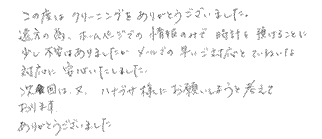 この度はクリーニングをありがとうございました。
遠方の為、ホームページでの情報のみで時計を預けることに
少し不安はありましたが メールでの早いご対応とていねいな
対応に安心いたしました。
次回は、又、ハナブサ様にお願いしようと考えて
おります。
ありがとうございました